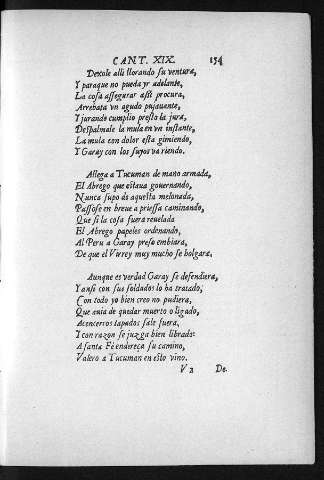 CANT. XIX. 154
Dexole alli llorando su ventura,
Y paraque no pueda yr adelante,
La cosa assegurar assi procura,
Arrebata vn agudo pujauante,
Y jurando cumplio presto la jura,
Despalmale la mula en vn instante,
La mula con dolor esta gimiendo,
Y Garay con los suyos va riendo.
Allega a Tucuman de mano armada,
El Abrego que estaua gouernando,
Nunca supo de aquesta melonada,
Passose en breue a priessa caminando,
Que si la cosa fuera reuelada
El Abrego papeles ordenando,
Al Peru a Garay preso embiara,
De que el Virrey muy mucho se holgara.
Aunque es verdad Garay se defendiera,
Y ansi con sus soldados lo ha tratado,
Con todo yo bien creo no pudiera,
Que auia de quedar muerto o ligado,
A cencerros tapados sale fuera,
Y con razon se juzga bien librado:
A santa Fè endereça su camino,
Valero a Tucuman en esto vino.
V 2 De